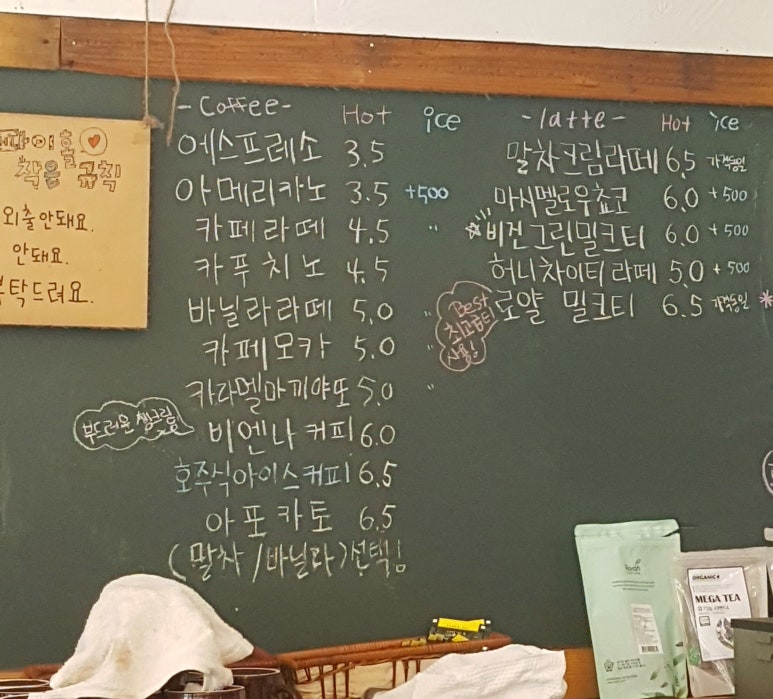 파이홀
작은 규칙
외출안돼요.
안돼요.
부탁드려요.
-Coffee- Hot ice
에스프레소 3.5
아메리카노 3.5 +500
카페라떼 4.5 〃
카푸치노 4.5
바닐라라떼 5.0 〃
카페모카 5.0 〃
카라멜마끼야또 5.0 〃
부드러운 생크림!
비엔나커피 6.0
호주식아이스커피 6.5
아포카토 6.5
(말차/바닐라)선택!
-latte- Hot ice
말차크림라떼 6.5 가격동일
마시멜로우쵸코 6.0 +500
비건그린밀크티 6.0 +500
허니차이티라떼 5.0 +500
로얄 밀크티 6.5 가격동일
Best
최고급티
사용!
ORGANIC
MEGA TEA